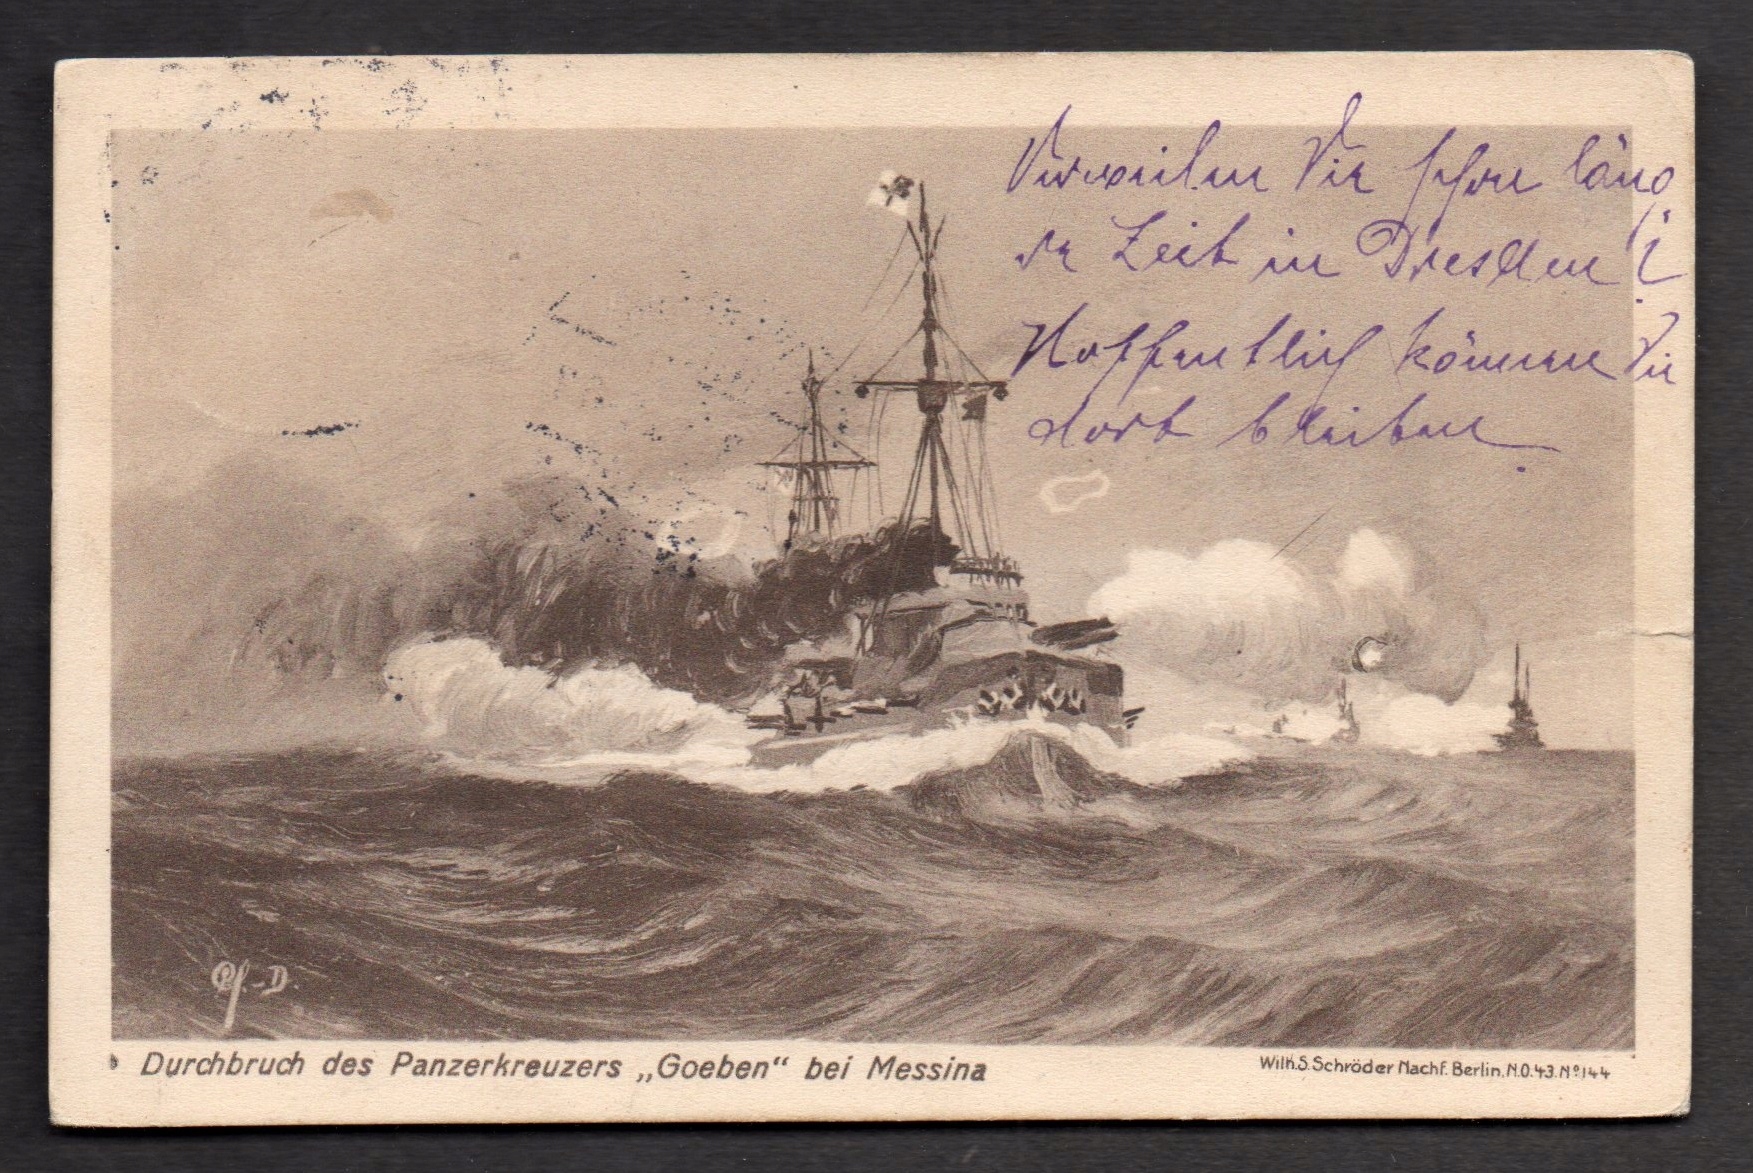 Verweilen Sie schon läng
re Zeit in Dresden?
Hoffentlich können Sie
dort bleiben.
Pf.-D.
Durchbruch des Panzerkreuzers „Goeben“ bei Messina
Wilh. S. Schröder Nachf. Berlin. N.O.43. Nº144